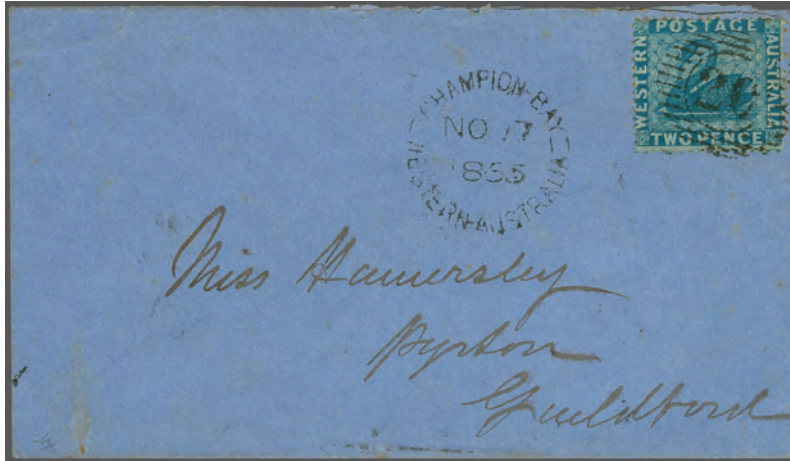 POSTAGE
WESTERN
AUSTRALIA
TWO PENCE
CHAMPION-BAY
NO 17
WESTERN-AUSTRALIA
Miss Hamersley
Pyrton
Guildford